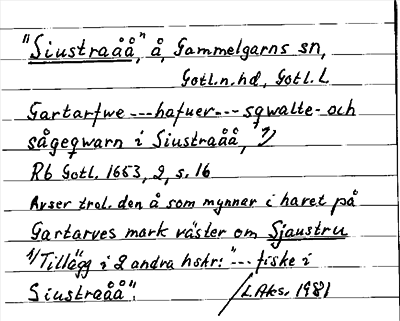 "Siustraåå", å, Gammelgarns sn,
Gotl.n.hd, Gotl. L
Gartarfwe --- hafuer --- sqwalte- och
sågeqwarn i Siustraåå, 1)
Rb Gotl. 1653, 2, s. 16
Avser trol. den å som mynnar i havet på
Gartarves mark väster om Sjaustru
1) Tillägg i 2 andra hskr: "--- fiske i
Siustraåå".
L Aks. 1981